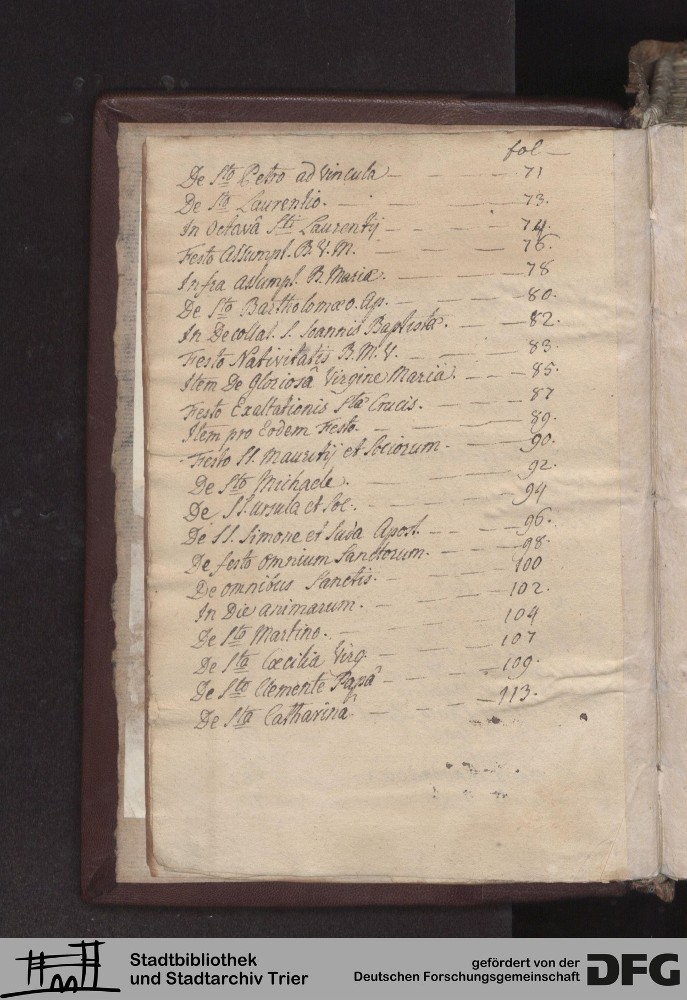 fol —
De Sto Petro ad Vincula — — — — 71
De Sto Laurentio. — — — 73.
In Octavâ Sti Laurentij — — — 74.
Festo Assumpt. B. V. M. — — — 76.
Infra assumpt. B. Mariæ. — — — 78
De Sto Bartholomæo. Ap. — — — 80.
In Decollat. S. Joannis Baptistæ. — — — 82.
Festo Nativitatis B. M. V. — — — 83.
Item De gloriosâ Virgine Mariâ. — — — 85.
Festo Exaltationis Stæ Crucis. — — — 87
Item pro Eodem Festo — — — 89.
Festo SS. Mauritij et Sociorum — — — 90.
De Sto Michaele. — — — 92.
De SS. Ursula et Soc. — — — 94
De SS. Simone et Juda Apost. — — — 96.
De festo omnium Sanctorum. — — — 98.
De omnibus Sanctis. — — — 100
In Die animarum. — — — 102.
De Sto Martino. — — — 104
De Sta Cæcilia Virg. — — — 107
De Sto Clemente Papâ — — — 109.
De Sta Catharinâ — — — 113.
Stadtbibliothek
und Stadtarchiv Trier
gefördert von der
Deutschen Forschungsgemeinschaft
DFG